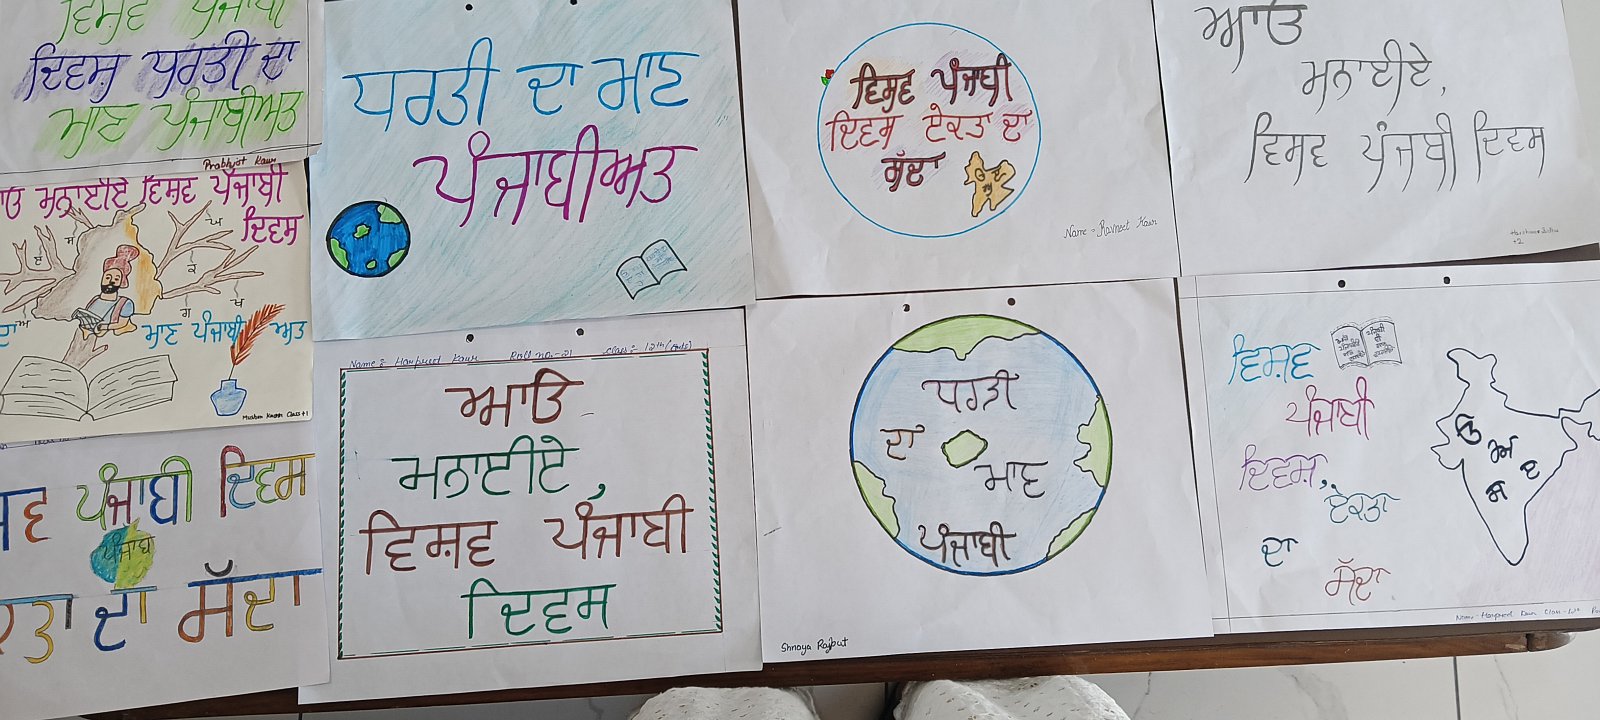 ਵਿਸ਼ਵ ਪੰਜਾਬੀ
ਦਿਵਸ਼ ਧਰਤੀ ਦਾ
ਮਾਣ ਪੰਜਾਬੀਅਤ
Prabhjot Kaur
ਧਰਤੀ ਦਾ ਮਾਣ
ਪੰਜਾਬੀਅਤ
ਵਿਸ਼ਵ ਪੰਜਾਬੀ
ਦਿਵਸ ਏਕਤਾ ਦਾ
ਸੱਦਾ
Name - Ravneet Kaur
ਆਓ
ਮਨਾਈਏ,
ਵਿਸ਼ਵ ਪੰਜਾਬੀ ਦਿਵਸ
+2
ਮਨਾਈਏ ਵਿਸ਼ਵ ਪੰਜਾਬੀ
ਦਿਵਸ
ਸ
ੲ
ਅ
ਕ
ਖ
ਗ
ਦਾ ਮਾਣ ਪੰਜਾਬੀਅਤ
Class +1
Name :- Harpreet Kaur Roll no.-21 Class :- 12th (Arts)
ਆਓ
ਮਨਾਈਏ,
ਵਿਸ਼ਵ ਪੰਜਾਬੀ
ਦਿਵਸ
ਧਰਤੀ
ਦਾ
ਮਾਣ
ਪੰਜਾਬੀ
Shnaya Rajput
ਵਿਸ਼ਵ
ਪੰਜਾਬੀ
ਦਿਵਸ਼,
ਏਕਤਾ
ਦਾ
ਸੱਦਾ
ੳ
ਅ
ੲ
ਸ
Name - Harpreet Kaur Class -
ਪੰਜਾਬੀ ਦਿਵਸ
ਪੰਜਾਬ
ਦਾ ਸੱਦਾ